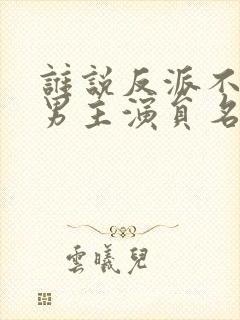 誰說反派不
男主演員名
雲曦兒